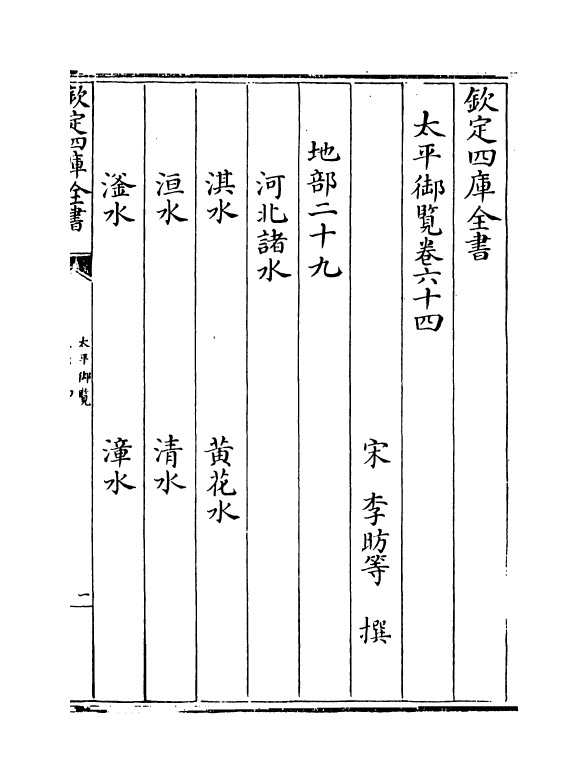 欽定四庫全書
太平御覧卷六十四
宋 李昉等 撰
地部二十九
河北諸水
淇水 黄花水
洹水 清水
滏水 漳水
欽定四庫全書
太平御覧
一